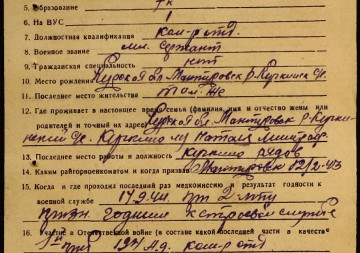 5. Образование 7 кл
6. На ВУС 1
7. Должностная квалификация ком-р отд.
8. Военное звание мл. сержант
9. Гражданская специальность нет
10. Место рождения Курской обл. Мантуровск р.
11. Последнее место жительства то же
12. Где проживает в настоящее время семья (фамилия, имя и отчество жены или
родителей и точный их адрес) Курской обл. Мантуровск р.
13. Последнее место работы и должность
14. Каким райгорвоенкоматом и когда призван Мантуровск 02/2-43
15. Когда и где проходил последний раз медкомиссию, результат годности к
военной службе 17.9.44
годным к строевой службе
16. Участие в Отечественной войне (в составе какой последней части в качестве
ком-р отд